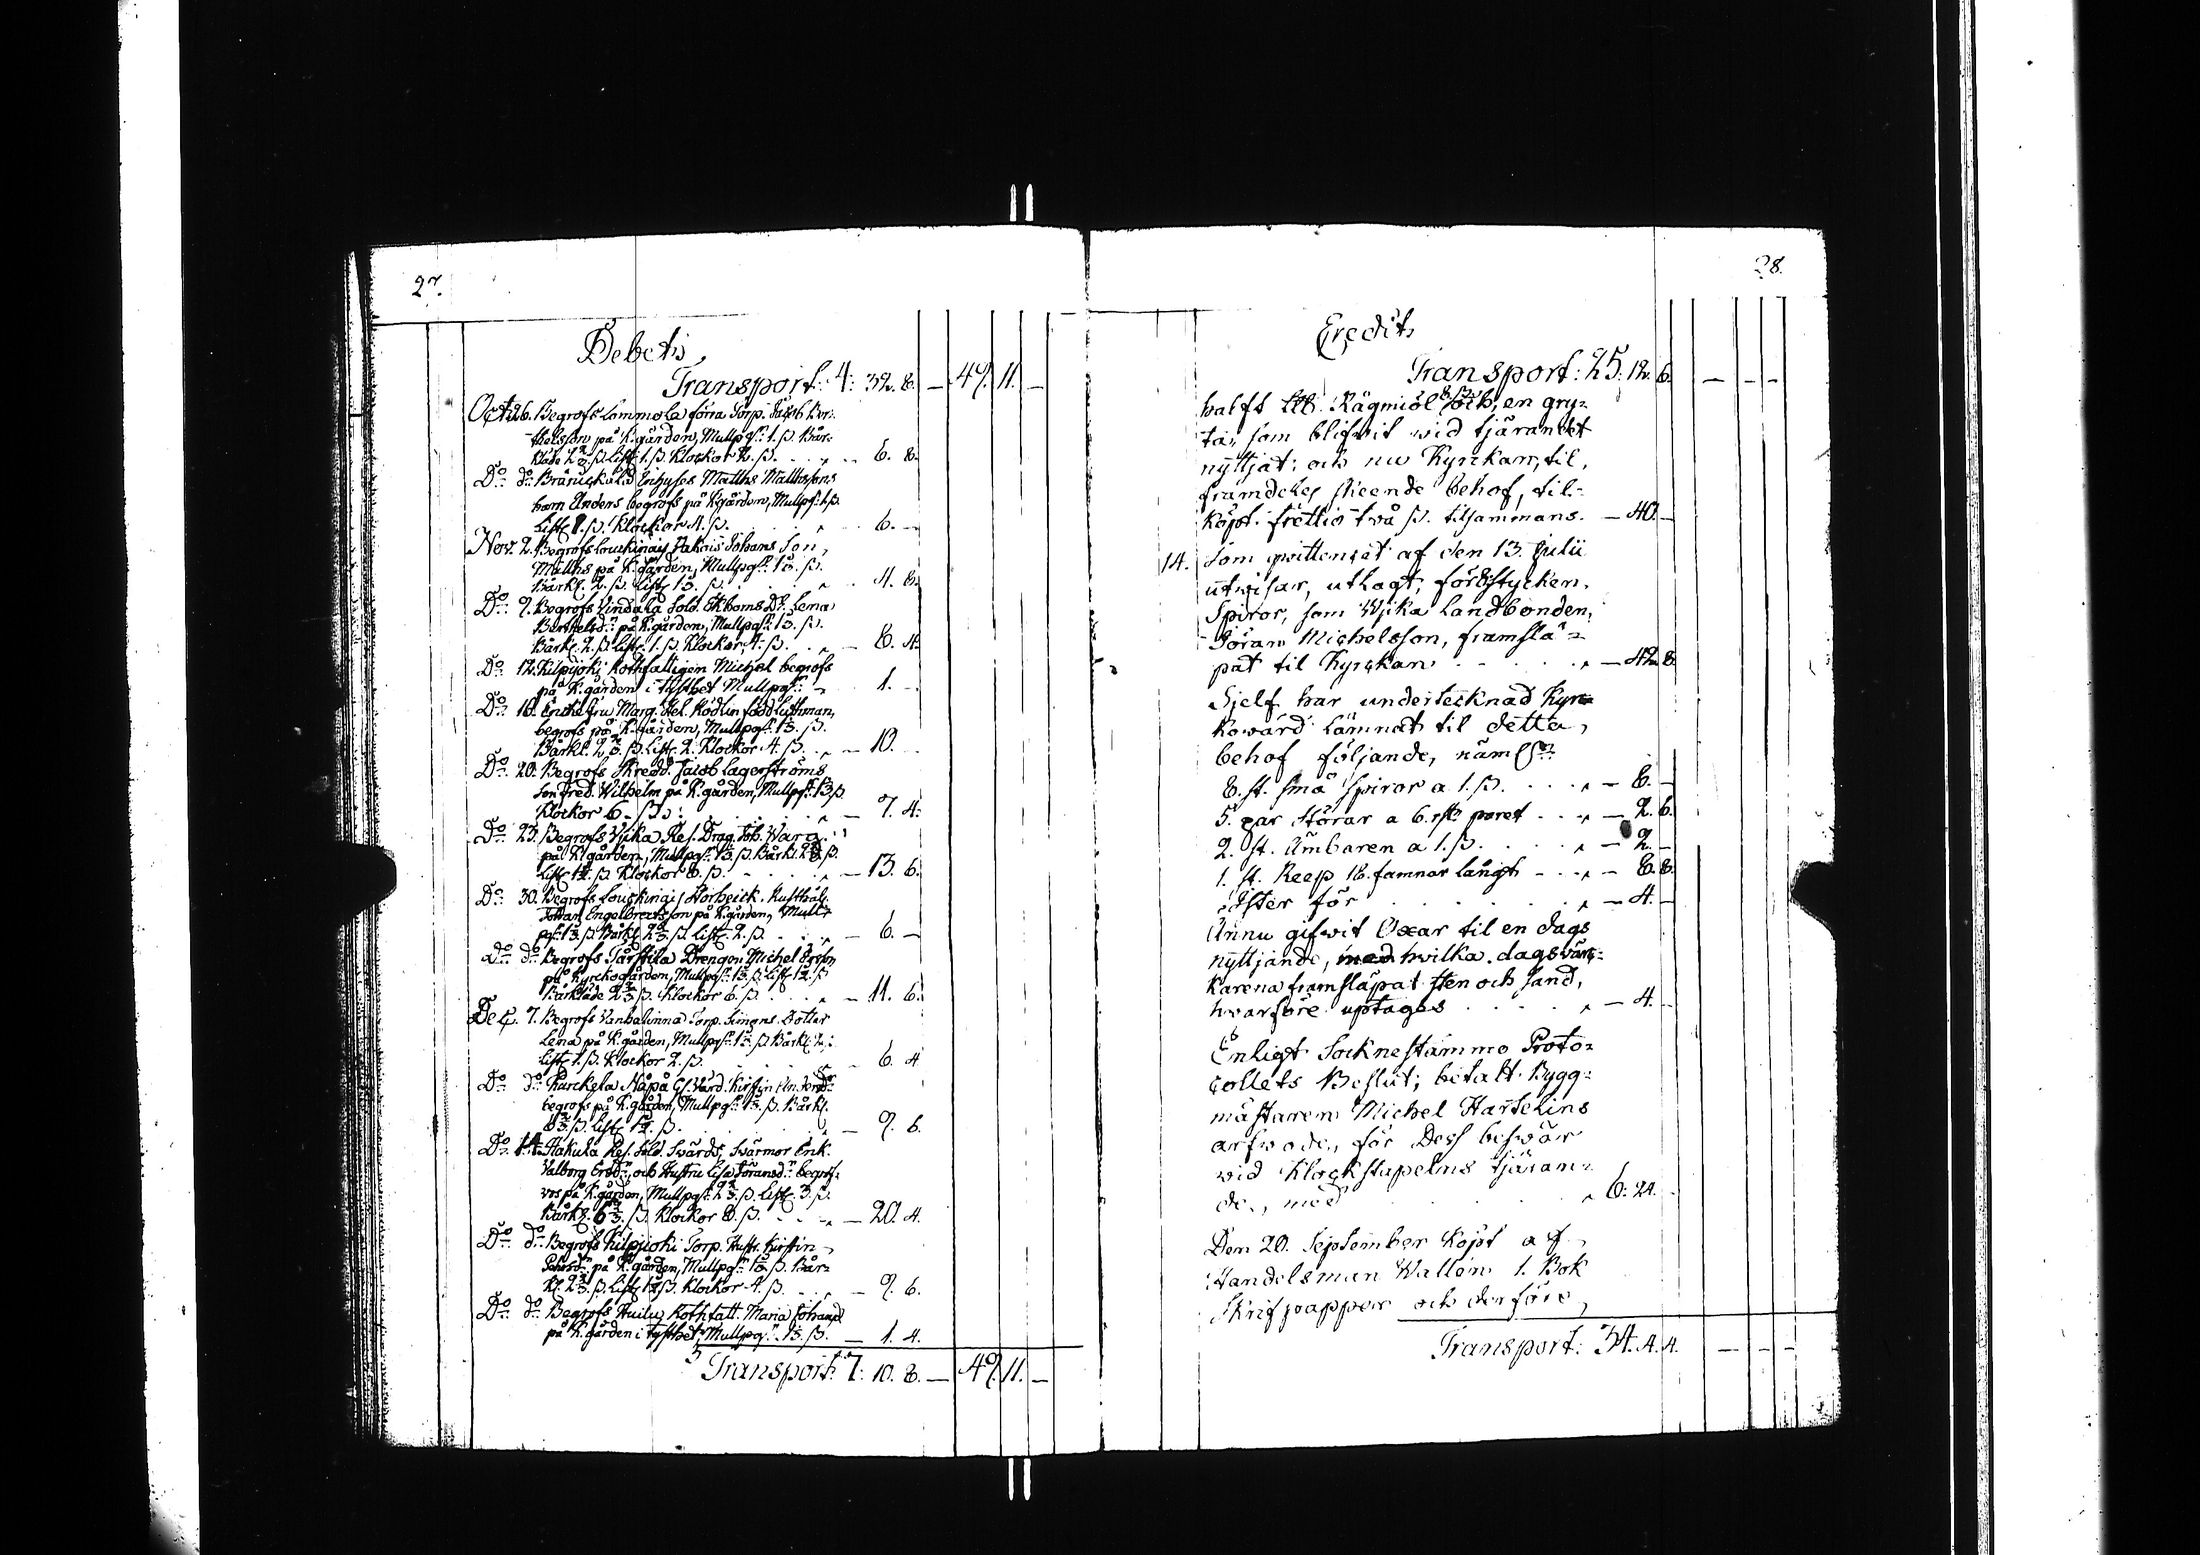 27.
Debets
Transport: 4: 32. 8. — 49. 11. —
Oct: 26. Begrofs Lammola förra Torp. Jacob Ber-
thelsson på K:gården, Mullpgr: 1. ß. Bår-
kläde 2 2/3 ß. Listr 1. ß. Klockor 2. ß. — 6. 8.
Do do Enhyses Matths Matthssons
barn Anders begrofs på K:gården, Mullpgr: 1. ß.
Listr 1. ß. Klockor 4. ß. 6. —
Nov. 2. Begrofs Louckinais Johans Son,
Matths på K:gården, Mullpgr: 1 1/3. ß.
Bårkl. 2. ß. Listr 1 1/3. ß. 4. 8.
Do 9. Begrofs Lindala Sold. Ekboms Dr. Lena
på K:gården, Mullpgr: 1 1/3. ß.
Bårkl. 2. ß. Listr. 1. ß. Klockor, 4. ß. — 8. 4.
Do 12. Kilpijoki Rothfattigen Michel begrofs
på K:gården i tysthet Mullpgr: 1. —
Do 16. Enckefru Marg. Hel. Rodlin född Luthman,
begrofs på K:gården, Mullpgr: 1 1/3. ß.
Bårkl. 2 2/3. ß. Listr. 2. Klockor 4. ß. — 10.
Do 20. Begrofs Skredd. Jacob Lagerströms
Son Fred. Wilhelm på K:gården, Mullpgr: 1 1/3 ß.
Klockor 6. ß. — 7. 4.
Do 23. Begrofs Wjika Res. Drag. Joh. Warg
på K:gården, Mullpgr: 1 1/3. ß. Bårkl. 2 2/3 ß.
Listr 1 1/2. ß. Klockor 8. ß. — 13. 6.
Do 30. Begrofs Louckinais Rusthål.
Johan Engelbrectsson på K:gården, Mull-
pgr: 1 1/3. ß. Bårkl. 2 2/3. ß. Listr. 2. ß. — 6. —
do do Begrofs Tarstila Drengen Michel Ersson
på Kyrckogården, Mullpgr: 1 1/3. ß. Listr. 1 1/2. ß
Bårkläde 2 2/3. ß. Klockor 6. ß. — 11. 6.
Dec. 7. Begrofs Vanhalinna Torp. Simons Dotter
Lena på K:gården, Mullpgr: 1 1/3. ß Bårkl. 2.
Listr 1. ß. Klockor 2. ß. 6. 4
Do do Kurckela Näpä Kirstin
begrofs på K:gården, Mullpgr: 1 1/3. ß. Bårkl.
ß. Listr 1 1/2. ß. — 9. 6.
Do 14. Hakula Res. Sold. Swärds, Swärmor Enk.
Valborg och Hustru Lisa begrof-
vos på K:gården, Mullpgr: 2 2/3. ß. Listr. 3. ß.
Bårkl. 6 2/3. ß. Klockor 8. ß. — 20. 4.
Do do Begrofs Kilpijoki Torp. Hustr. Kirstin
på K:gården, Mullpgr: 1 1/3. ß. Bår-
kl. 2 2/3. ß. Listr 1 1/2 ß. Klockor 4. ß. — 9. 6.
Do do Begrofs Huilu Rothfatt. Maria
på K:gården i tysthet, Mullpgr: 1 1/3. ß. — 1. 4.
Transport: 7: 10. 8. — 49. 11. —
28.
Credit
Transport: 25: 12. 6. — — —
halft Rågmiöl och, en gry-
ta, som blifwit wid tjärandet
nyttjat; och nu Kyrckan, til,
framdeles skeende behof, til-
köpt. frettio två ß. tilsammans. — 40. —
14. Som qvittencet af den 13. Julii
utwisar, utlagt, för 8 stycken,
Spiror, som Wjika Landbonden,
Jöran Michelsson, framslä-
pat til Kyrckan — 42. 8.
Sjelf har undertecknad Kyr-
kowärd lämnat til detta,
behof följande, näml.n
8. st. små spiror a 1. ß. — 8. —
5. par störar a 6. rst. paret — 2. 6.
2. st. Ämbaren a 1. ß. — 2. —
1. st. Reep 18. famnar långt — 8. 8.
Ister för — 4. —
Ännu gifwit Oxar til en dags
nyttjande, med hwilka dagsvär-
karena framsläpat sten och sand,
hwarföre uptages — 4. —
Enligt Socknestämmo Proto-
collets Beslut; betalt Bygg-
mästaren Michel Hartelins
arfwode, för Dess beswär
wid Klockstapelns tjäran-
de, med 6: 24.
Den 20. September köpt af
Handelsman Wallen 1. Bok
Skrifpapper och derföre,
Transport: 34. 4. 4. — — —